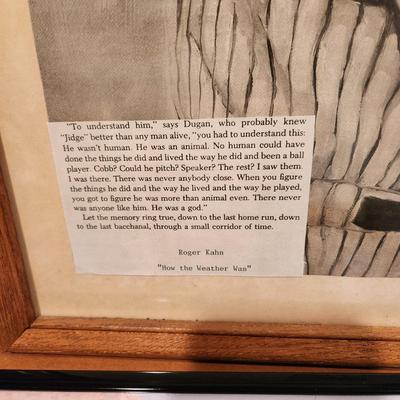 "To understand him," says Dugan, who probably knew
"Jidge" better than any man alive, "you had to understand this:
He wasn't human. He was an animal. No human could have
done the things he did and lived the way he did and been a ball
player. Cobb? Could he pitch? Speaker? The rest? I saw them.
I was there. There was never anybody close. When you figure
the things he did and the way he lived and the way he played,
you got to figure he was more than animal even. There never
was anyone like him. He was a god."
Let the memory ring true, down to the last home run, down
to the last bacchanal, through a small corridor of time.
Roger Kahn
"How the Weather Was"